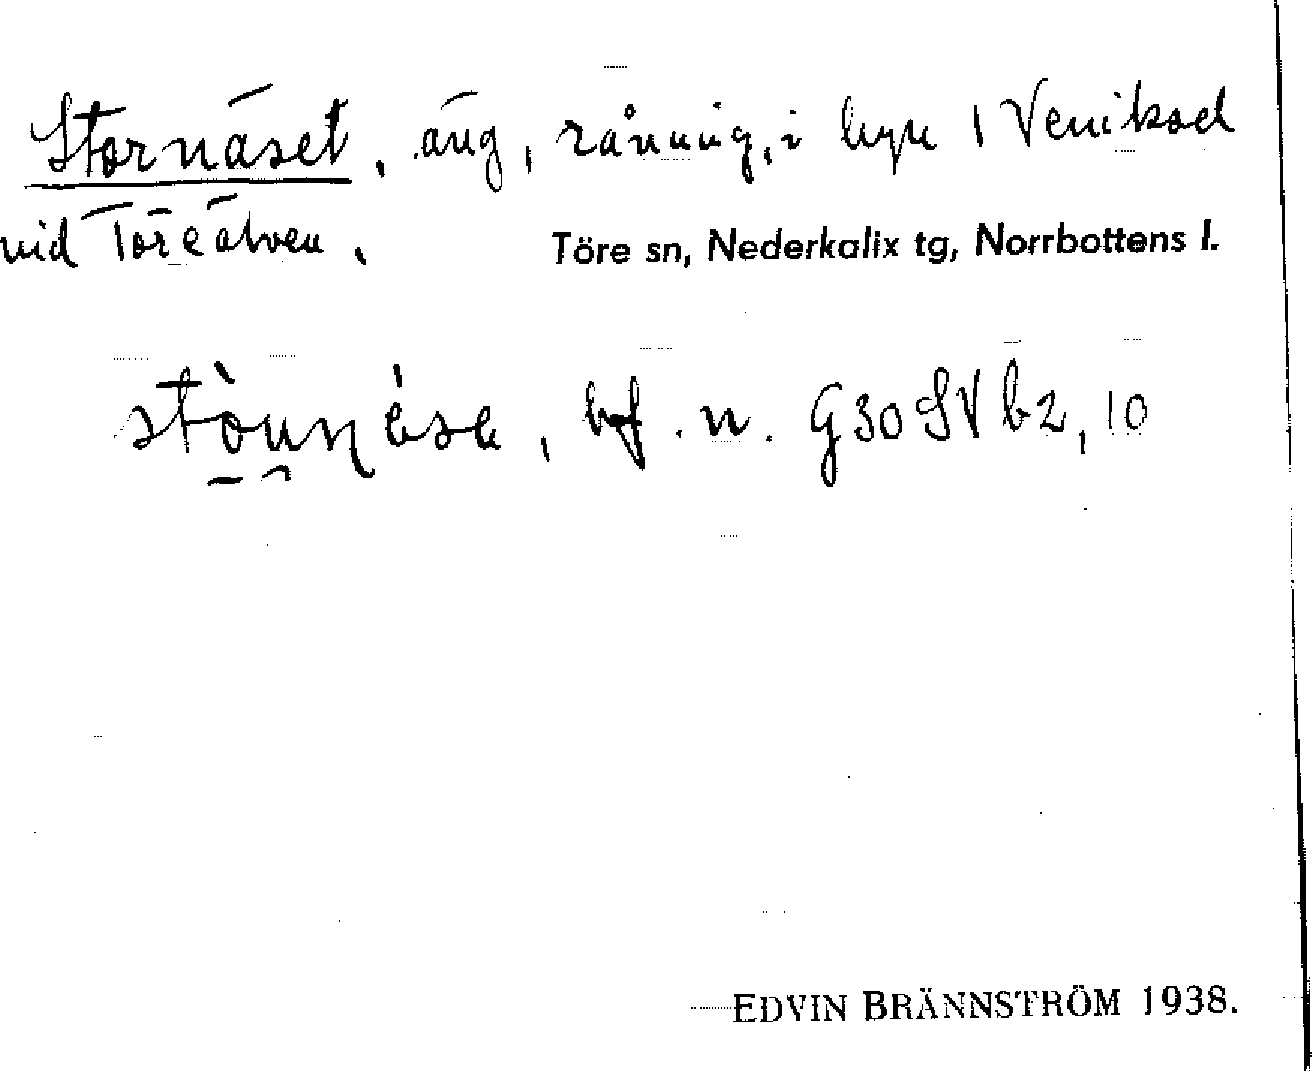 Stornäset, äng, rånning, i byn
vid Töreälven.
Töre sn, Nederkalix tg, Norrbottens l.
bf. n. G30SVb2,10
EDVIN BRÄNNSTRÖM 1938.